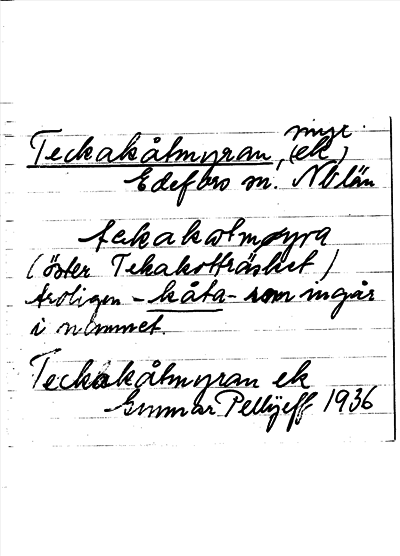 myr.
Teckakåtmyran, (ek)
Edefors sn. Nb län
tekakotmyra
(öster Tekakotträsket)
troligen - kåta - som ingår
i namnet.
Teckakåtmyran ek
Gunnar Pellijeff 1936